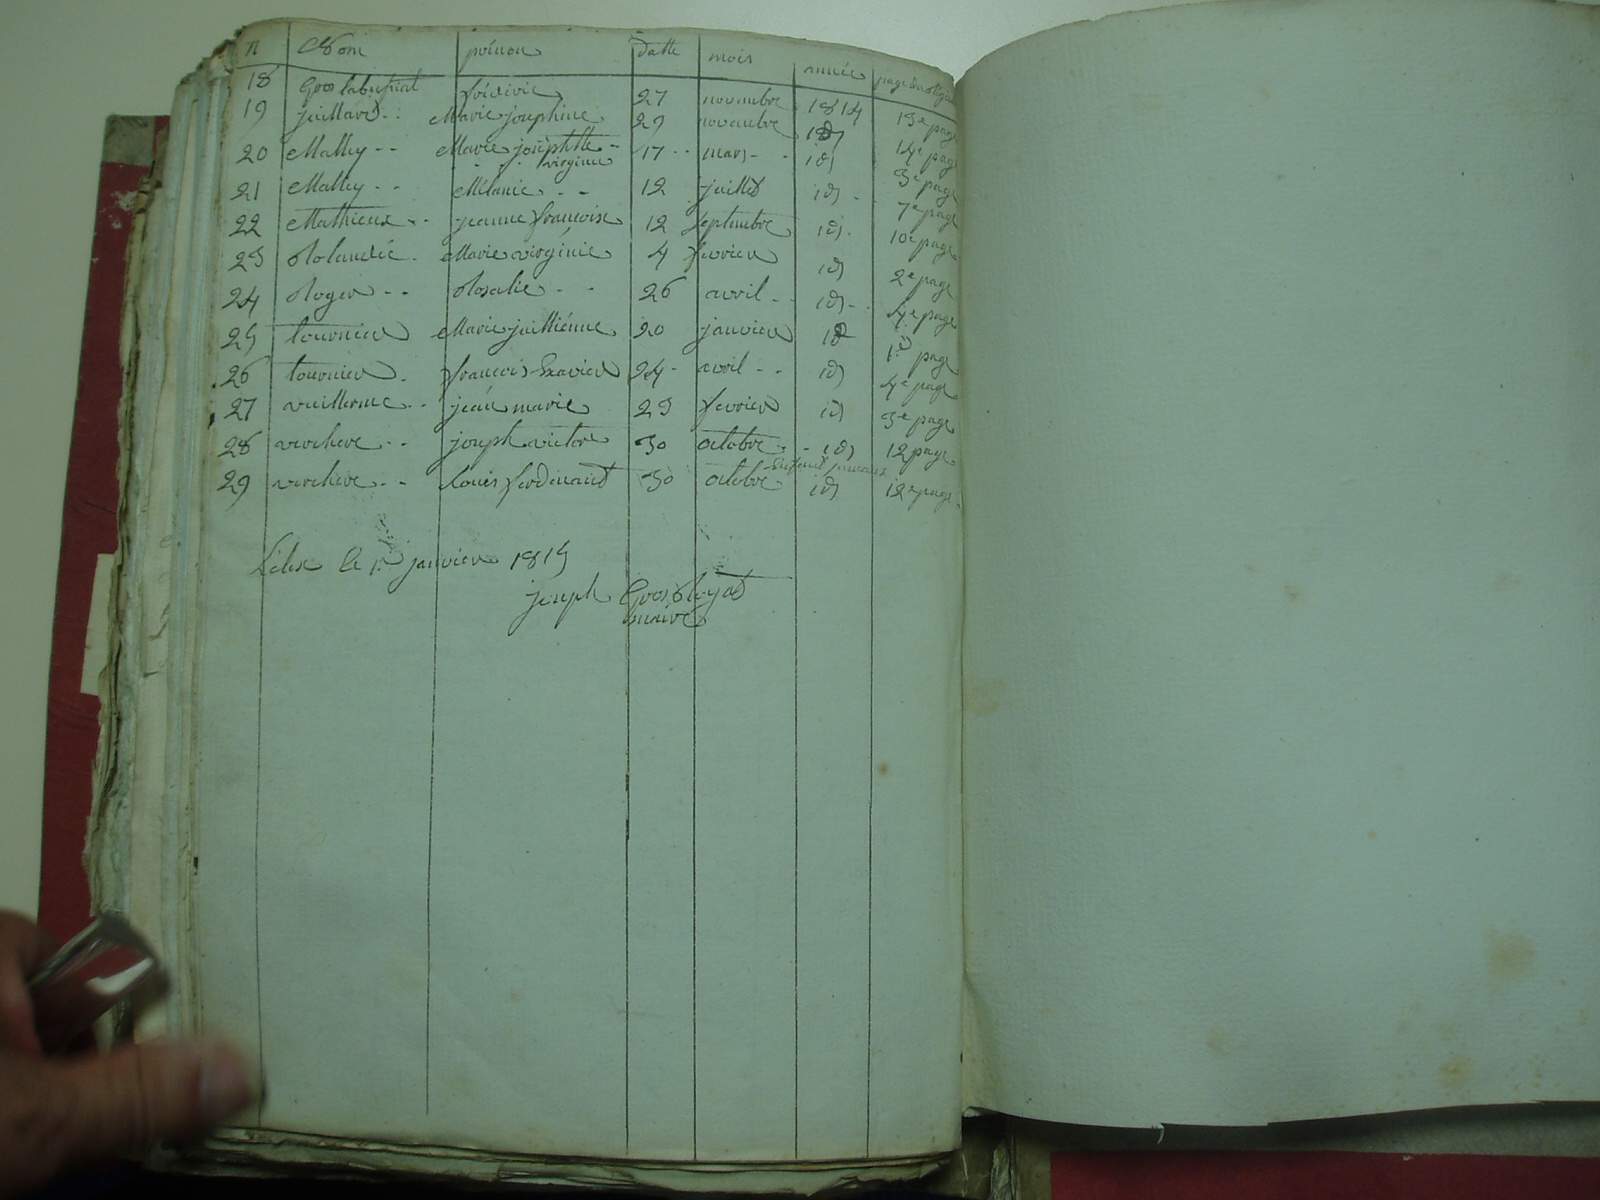 n Nom prénom datte mois année page du régis
18 Gros labussiat 27 novembre 1814 13e page
19 juillard Marie josephine 29 novembre id 14e page
20 Mathy Marie josephtte virginie 17 mars id 3e page
21 Mathy Mélanie 12 juillet id 7e page
22 Mathieux jeanne françoise 12 septembre id 10e page
23 Rolandéz Marie virginie 4 fevrier id 2e page
24 Roger Rosalie 26 avril id 4e page
25 tournier Marie jullienne 20 janvier id 1er page
26 tournier françois Exavier 24 avril id 4e page
27 vuillerme jean marie 23 fevrier id 3e page
28 verchere joseph victor 30 octobre id 12 page
Enfant jumeaux
29 verchere Louis ferdinand 30 octobre id 12e page
Lélex le 1er janvier 1815
joseph Gros Royat
maire